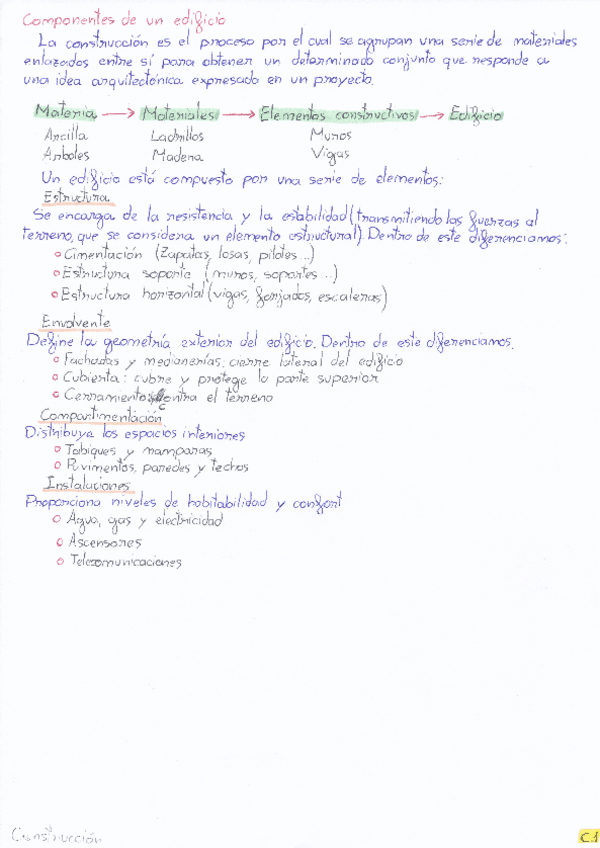 Componentes de un edificio
La construcción es el proceso por el cual se agrupan una serie de materiales
enlazados entre sí para obtener un determinado conjunto que responde a
una idea arquitectónica expresado en un proyecto.
Materia → Materiales → Elementos constructivos → Edificio
Arcilla Ladrillos Muros
Árboles Madera Vigas
Un edificio está compuesto por una serie de elementos:
Estructura
Se encarga de la resistencia y la estabilidad (transmitiendo las fuerzas al
terreno, que se considera un elemento estructural). Dentro de este diferenciamos:
Cimentación (Zapatas, losas, pilotes ...)
Estructura soporte (muros, soportes ...)
Estructura horizontal (vigas, forjados, escaleras)
Envolvente
Define la geometría exterior del edificio. Dentro de este diferenciamos.
Fachadas y medianerías: cierre lateral del edificio
Cubierta: cubre y protege la parte superior
Cerramientos contra el terreno
Compartimentación
Distribuye los espacios interiores
Tabiques y mamparas
Pavimentos, paredes y techos
Instalaciones
Proporciona niveles de habitabilidad y confort
Agua, gas y electricidad
Ascensores
Telecomunicaciones
Construcción
C.1